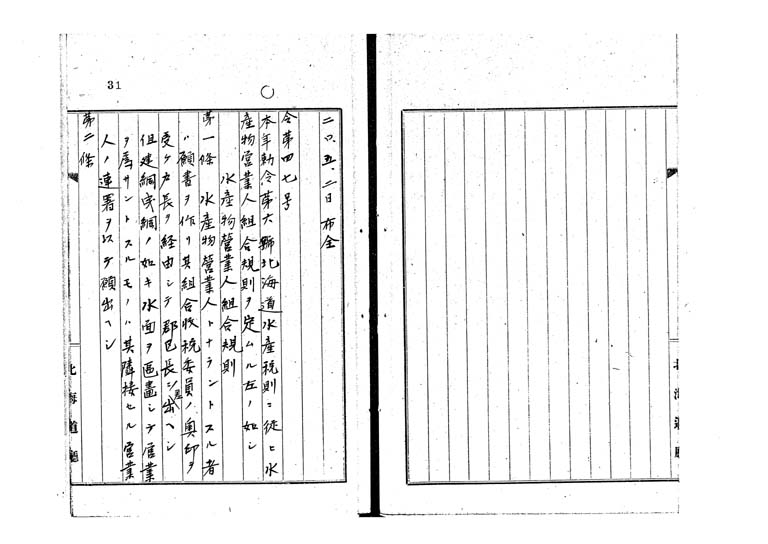 31
二〇、五、二日 布全
令第四七号
本年勅令第六号北海道水産税則ニ従ヒ水
産物営業人組合規則ヲ定ムル左ノ如シ
水産物営業人組合規則
第一条 水産物営業人トナラントスル者
ハ願書ヲ作リ其組合収税委員ノ奥印ヲ
受ケ戸長ヲ経由シテ郡区長ニ届出ヘシ
但建網曳網ノ如キ水面ヲ区画シテ営業
ヲ為サントスルモノハ其隣接セル営業
人ノ連署ヲ以テ願出ヘシ
第二條
北海道廳